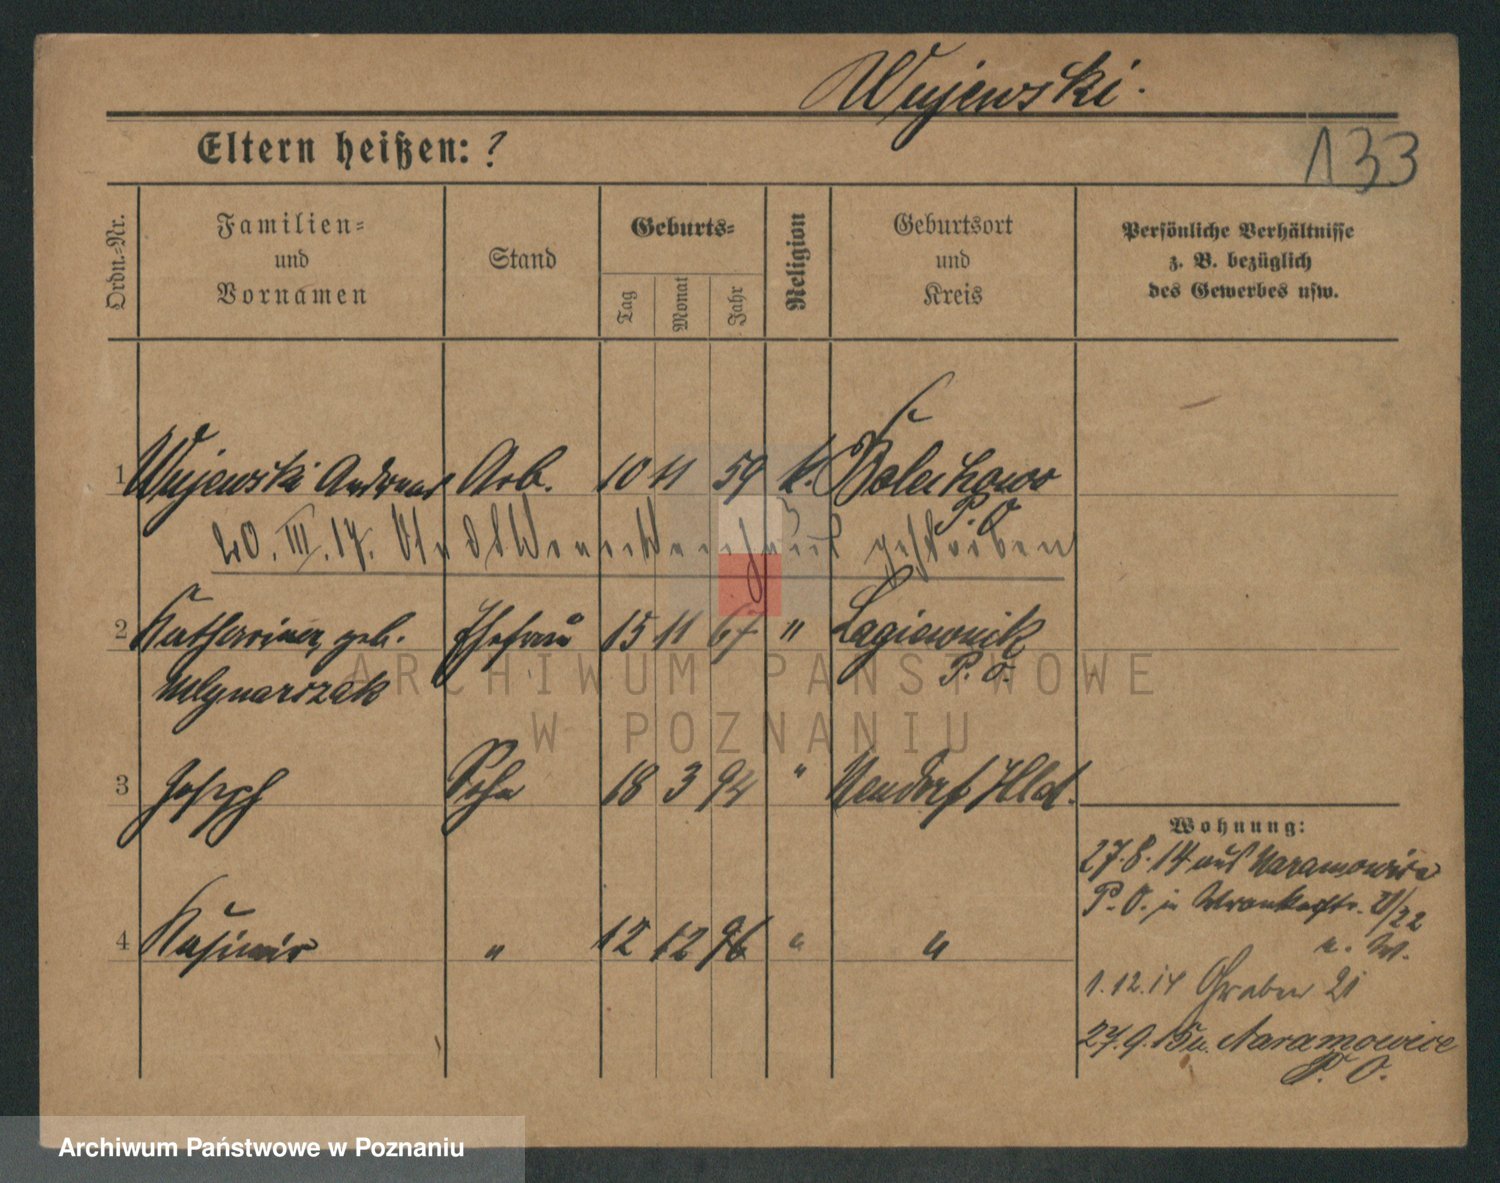 Wujewski.
Eltern heißen: ?
133
Ordn.-Nr.
Familien-
und
Vornamen
Stand
Geburts-
Tag
Monat
Jahr
Religion
Geburtsort
und
Kreis
Persönliche Verhältnisse
z. B. bezüglich
des Gewerbes usw.
1 Wujewski Andreas Arb. 10 11 59 k. Bolechowo
P. O
20. III. 17. gestorben
2 Katharina, geb. Ehefrau 15 11 67 " Lagiewnik
Mlynarczak P. O.
3 Joseph Sohn 18 3 94 " Neudorf Hld.
4 Kasimir " 12 12 96 " "
Wohnung:
27.8.14 aus Naramowice
P. O. in Wronkerstr. 21/22
b. W.
1.12.14 Graben 21
27.9.15 n. Naramowice
P. O.
ARCHIWUM PAŃSTWOWE
W POZNANIU
Archiwum Państwowe w Poznaniu